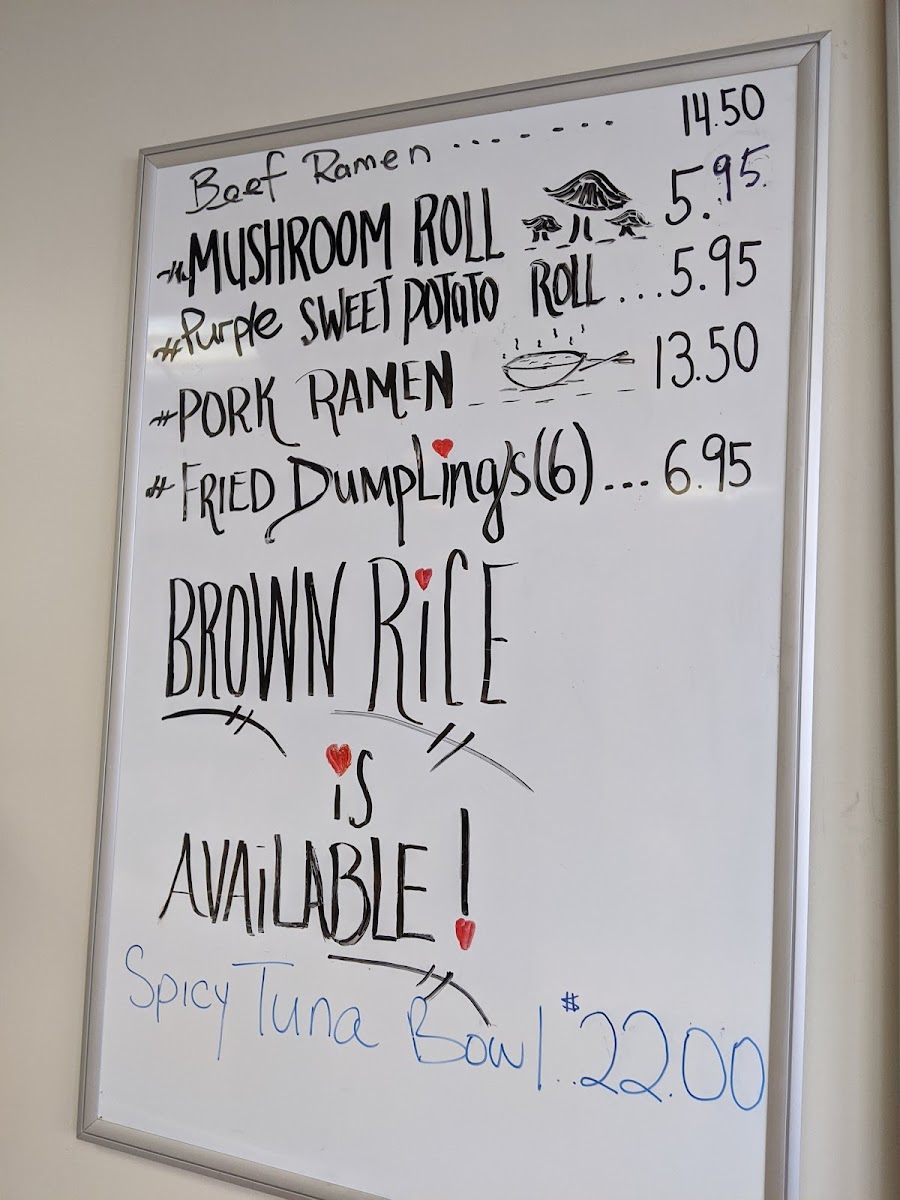 Beef Ramen ........ 14.50
#MUSHROOM ROLL 5.95.
#Purple SWEET POTATO ROLL ...5.95
#PORK RAMEN 13.50
#FRIED DUMPLings(6)... 6.95
BROWN RiCE
iS
AVAiLABLE!
Spicy Tuna Bowl..$22.00